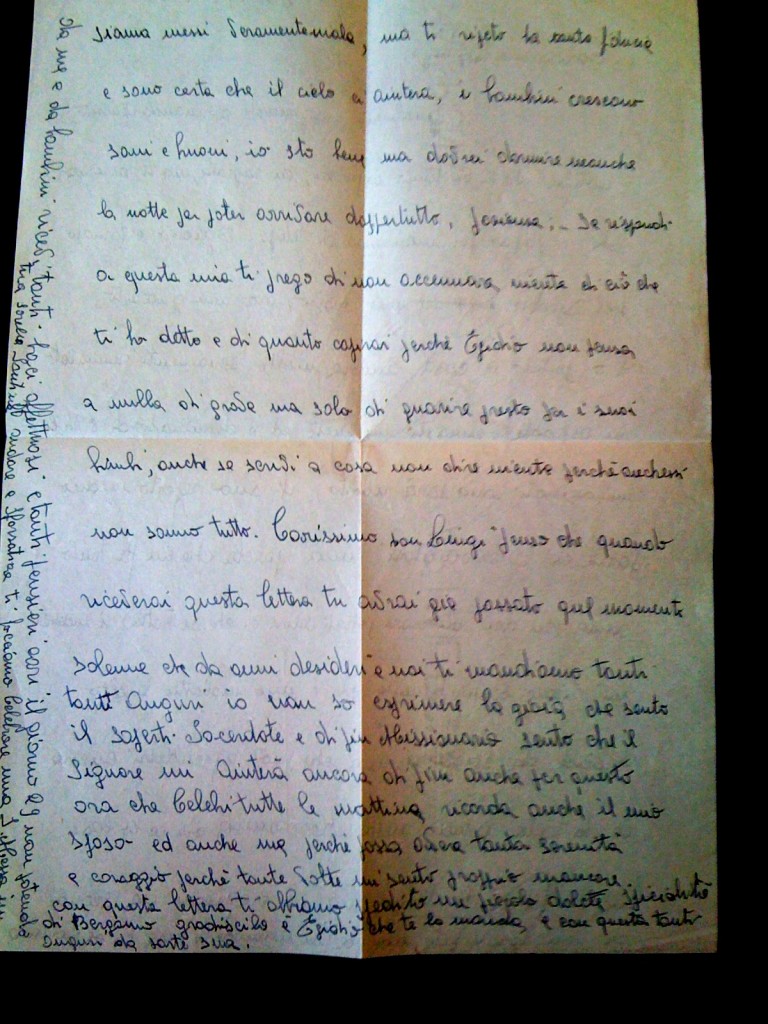 siamo messi veramente male, ma ti ripeto ho tanta fiducia
e sono certa che il cielo ci aiuterà, i bambini crescono
sani e buoni, io sto bene ma dovrei dormire neanche
la notte per poter arrivare dappertutto, pazienza; - Se rispondi
a questa mia ti prego di non accennare niente di ciò che
ti ho detto e di quanto capirai perché Egidio non pensa
a nulla di grave ma solo di guarire presto per i suoi
bimbi, anche se scrivi a casa non dire niente perché anch'essi
non sanno tutto. Carissimo don Luigi penso che quando
riceverai questa lettera tu avrai già passato quel momento
solenne che da anni desideri e noi ti mandiamo tanti
tanti Auguri io non so esprimere la gioia che sento
il saperti Sacerdote e di più Missionario sento che il
Signore mi Aiuterà ancora di più anche per questo
ora che Celebri tutte le mattina ricorda anche il mio
sposo ed anche me perché possa avere tanta serenità
e coraggio perché tante volte mi sento proprio mancare
con questa lettera ti abbiamo spedito un piccolo dolce Specialità
di Bergamo gradiscilo è Egidio che te lo manda, e con questa tanti
Auguri da parte sua.
Da me e da bambini ricevi tanti baci affettuosi e tanti pensieri cari il giorno 29 non potendo
tua sorella andare a ti facciamo Celebrare una S. Messa